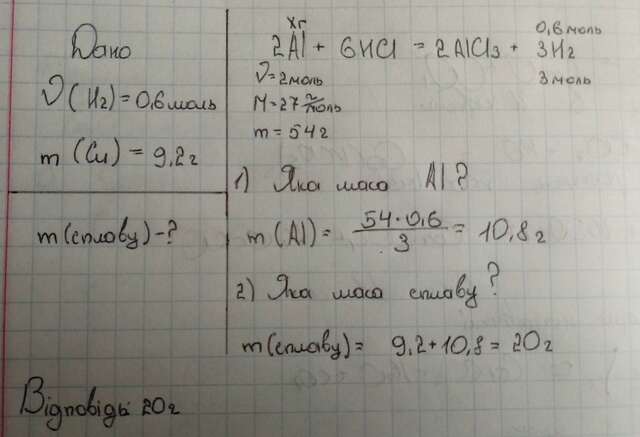 Дано
ν(H2)=0,6 моль
m(Cu)=9,2г
m(сплаву)-?
хг 0,6 моль
2Al + 6HCl = 2AlCl3 + 3H2
ν=2моль 3 моль
M=27 г/моль
m=54г
1) Яка маса Al?
m(Al)= 54·0,6/3 = 10,8г
2) Яка маса сплаву?
m(сплаву)= 9,2+10,8=20г
Відповідь 20г